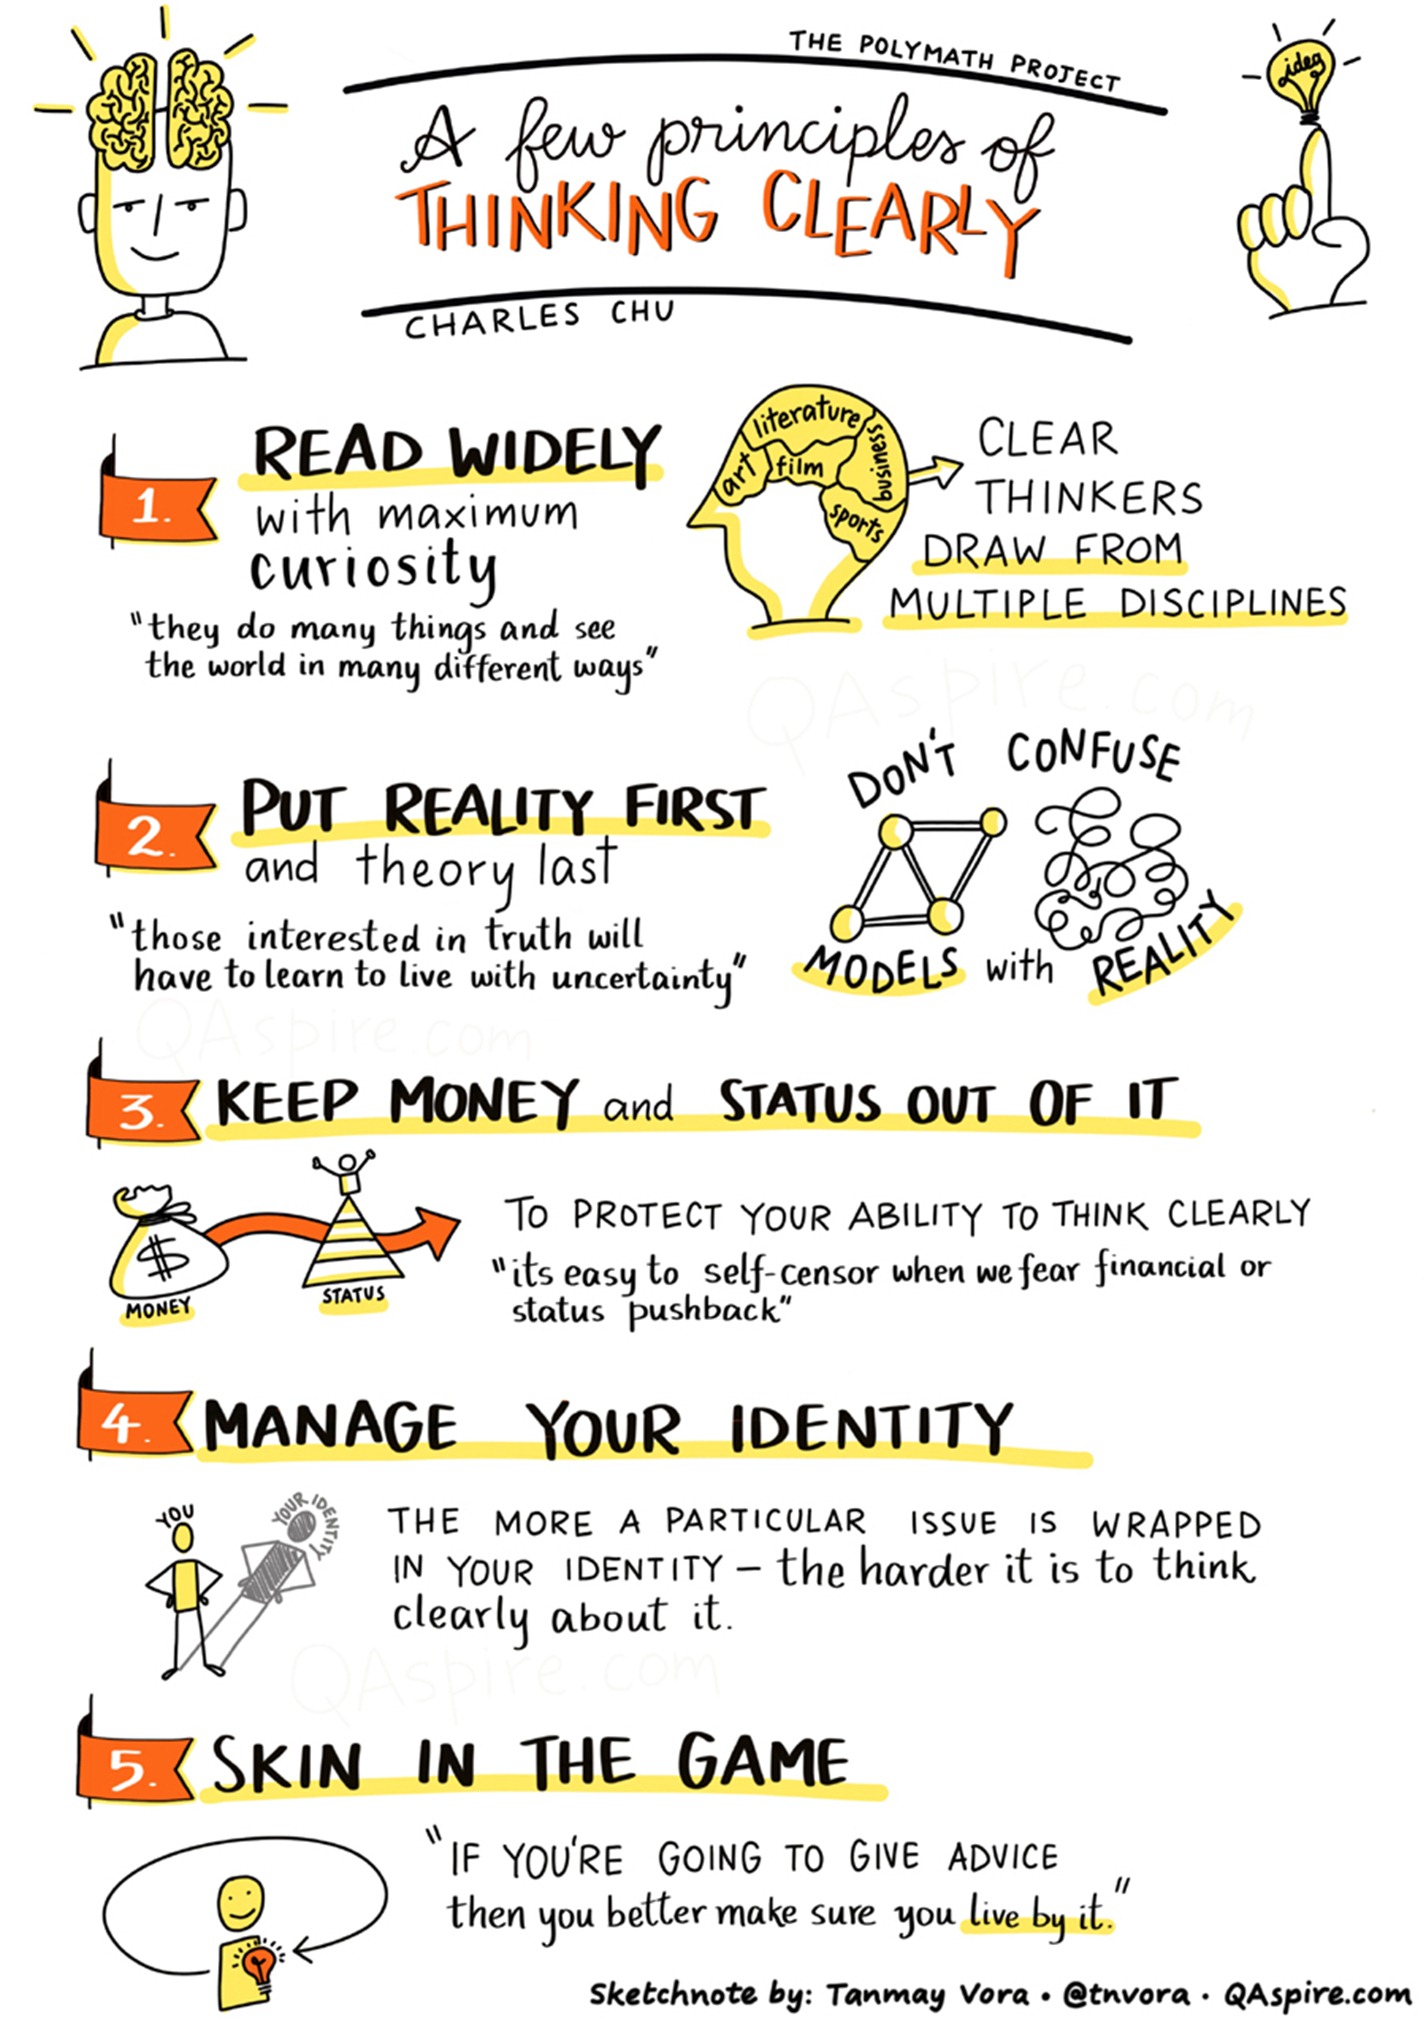 THE POLYMATH PROJECT
A few principles of
THINKING CLEARLY
CHARLES CHU
idea
1.
READ WIDELY
with maximum
curiosity
"they do many things and see
the world in many different ways"
literature
art
film
business
sports
CLEAR
THINKERS
DRAW FROM
MULTIPLE DISCIPLINES
QAspire.com
2.
PUT REALITY FIRST
and theory last
"those interested in truth will
have to learn to live with uncertainty"
DON'T CONFUSE
MODELS with REALITY
QAspire.com
3.
KEEP MONEY and STATUS OUT OF IT
$
MONEY
STATUS
TO PROTECT YOUR ABILITY TO THINK CLEARLY
"its easy to self-censor when we fear financial or
status pushback"
4.
MANAGE YOUR IDENTITY
YOU
YOUR IDENTITY
THE MORE A PARTICULAR ISSUE IS WRAPPED
IN YOUR IDENTITY – the harder it is to think
clearly about it.
QAspire.com
5.
SKIN IN THE GAME
"IF YOU'RE GOING TO GIVE ADVICE
then you better make sure you live by it."
Sketchnote by: Tanmay Vora • @tnvora • QAspire.com